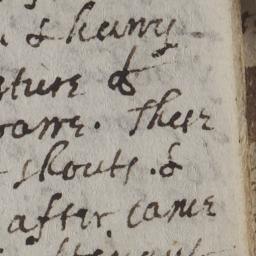 & heavy
sture &
warre. These
shouts. &
after came